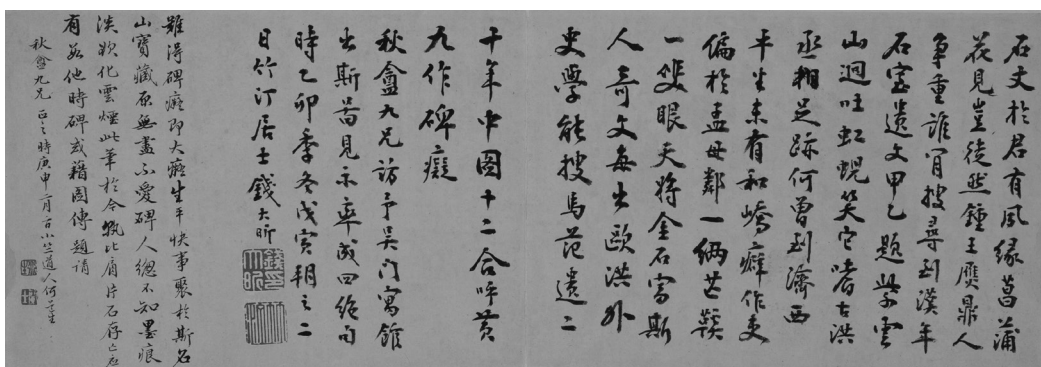 石文於君有夙緣菖蒲
花見豈徒然鍾王贗鼎人
争重誰肯搜尋到漢年
石室遺文甲乙題紫雲
山迴吐虹蜺笑它嗜古洪
丞相足跡何曾到濟西
半生未有和嶠癖作吏
偏於孟母鄰一緉芒鞵
一雙眼天將金石富斯
人奇文每出歐洪外
史學能搜馬范遺二
千年中圖十二合呼黄
九作碑癡
秋盦九兄訪予吴门寓館
出斯啚見示率成四絶句
時乙卯季冬戊寅朔之二
日竹汀居士錢大昕
錢大昕印
竹汀
難得碑癡即大癡生平快事聚於斯名
山寶藏原無盡不愛碑人總不知墨痕
淡欲化雲煙此筆於今孰比肩片石存亡应
有數他時碑或藉圖傳題請
秋盦九兄正之時庚申二月小道人何